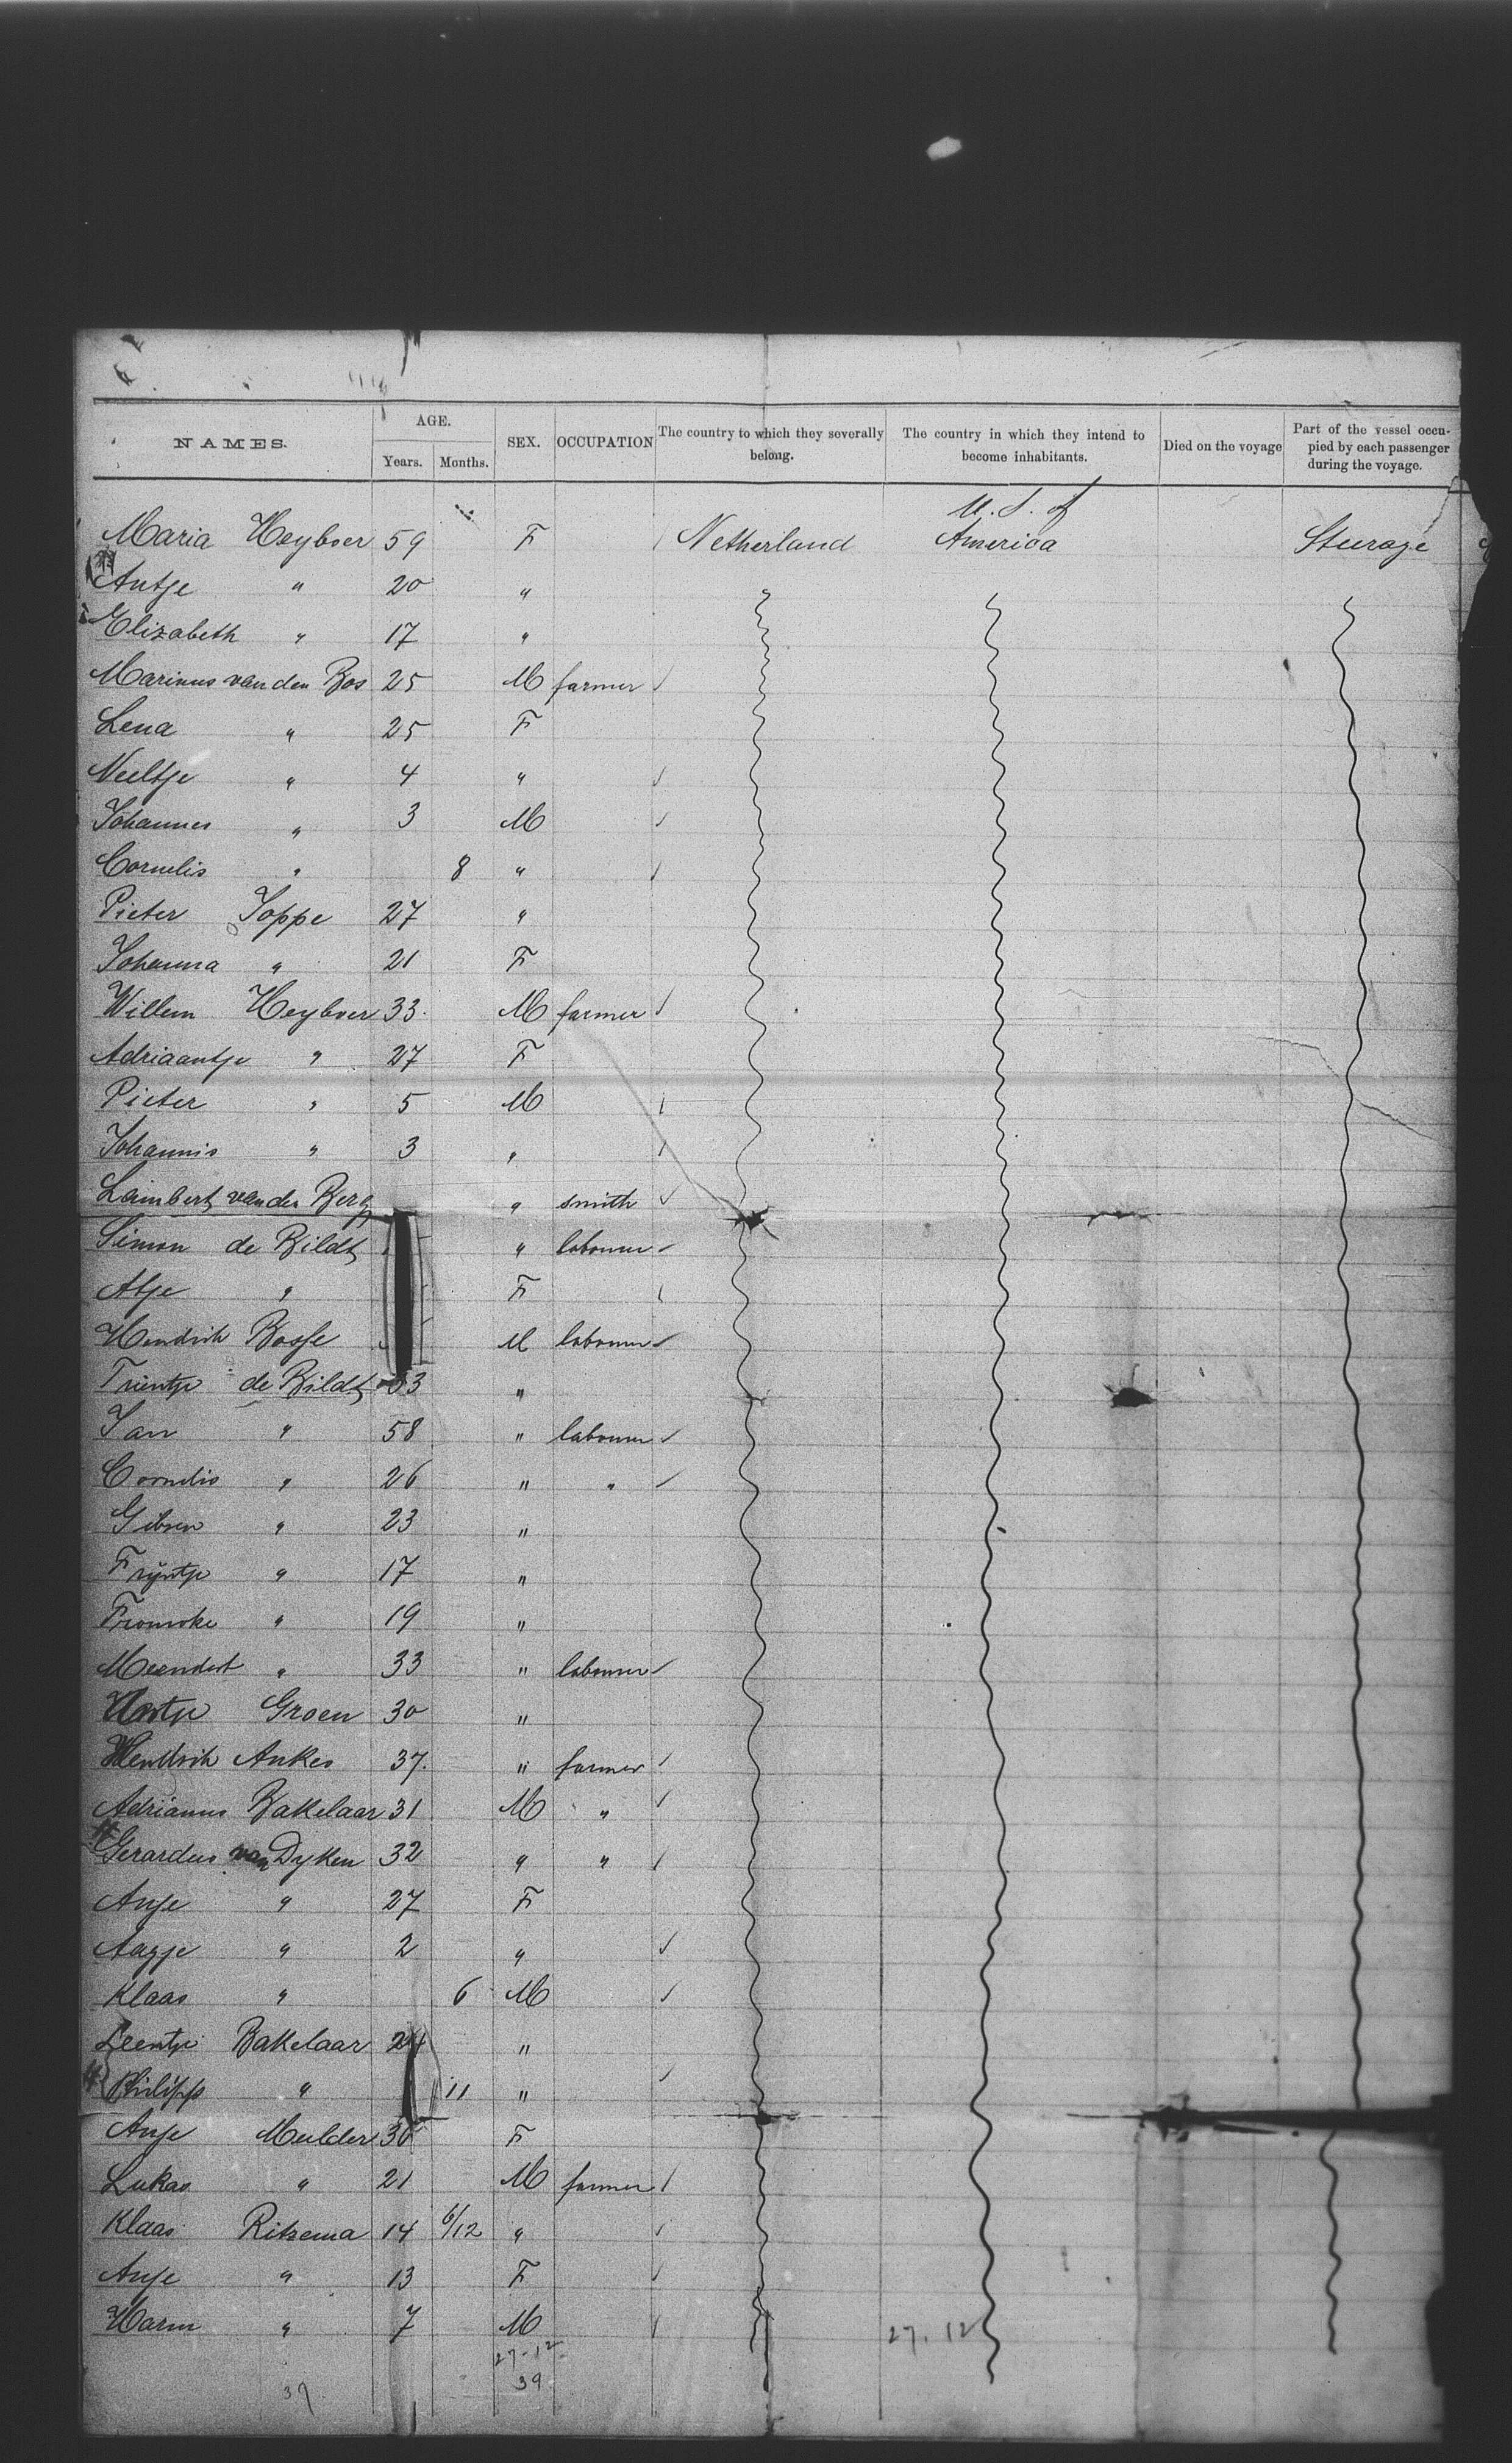 NAMES. AGE. SEX. OCCUPATION The country to which they severally belong. The country in which they intend to become inhabitants. Died on the voyage Part of the vessel occupied by each passenger during the voyage.
Years. Months.
U. S. of
Maria Heyboer 59 F Netherland America Steerage
Antje " 20 "
Elizabeth " 17 "
Marinus van den Bos 25 M farmer
Lena " 25 F
Neeltje " 4 "
Johannes " 3 M
Cornelis " 8 "
Pieter Joppe 27 "
Johanna " 21 F
Willem Heyboer 33 M farmer
Adriaantje " 27 F
Pieter " 5 M
Johannis " 3 "
Lambert van der Berg " smith
Simon de Bildt " labourer
Atje " F
Hendrik Bosse M labourer
Trientje de Bildt 53 "
Jan " 58 " labourer
Cornelis " 26 " "
" 23 "
Frijntje " 17 "
" 19 "
Meendert " 33 " labourer
Groen 30 "
Hendrik Ankes 37. " farmer
Adrianus Bakelaar 31 M "
Gerardus van Dyken 32 " "
Anje " 27 F
Aagje " 2 "
Klaas " 6 M
Leentje Bakelaar 24 "
Philipp " 11 "
Anje Mulder 30 F
Lukas " 21 M farmer
Klaas Ritzema 14 6/12 "
Anje " 13 F
Harm " 7 M
27-12 27.12
39 39